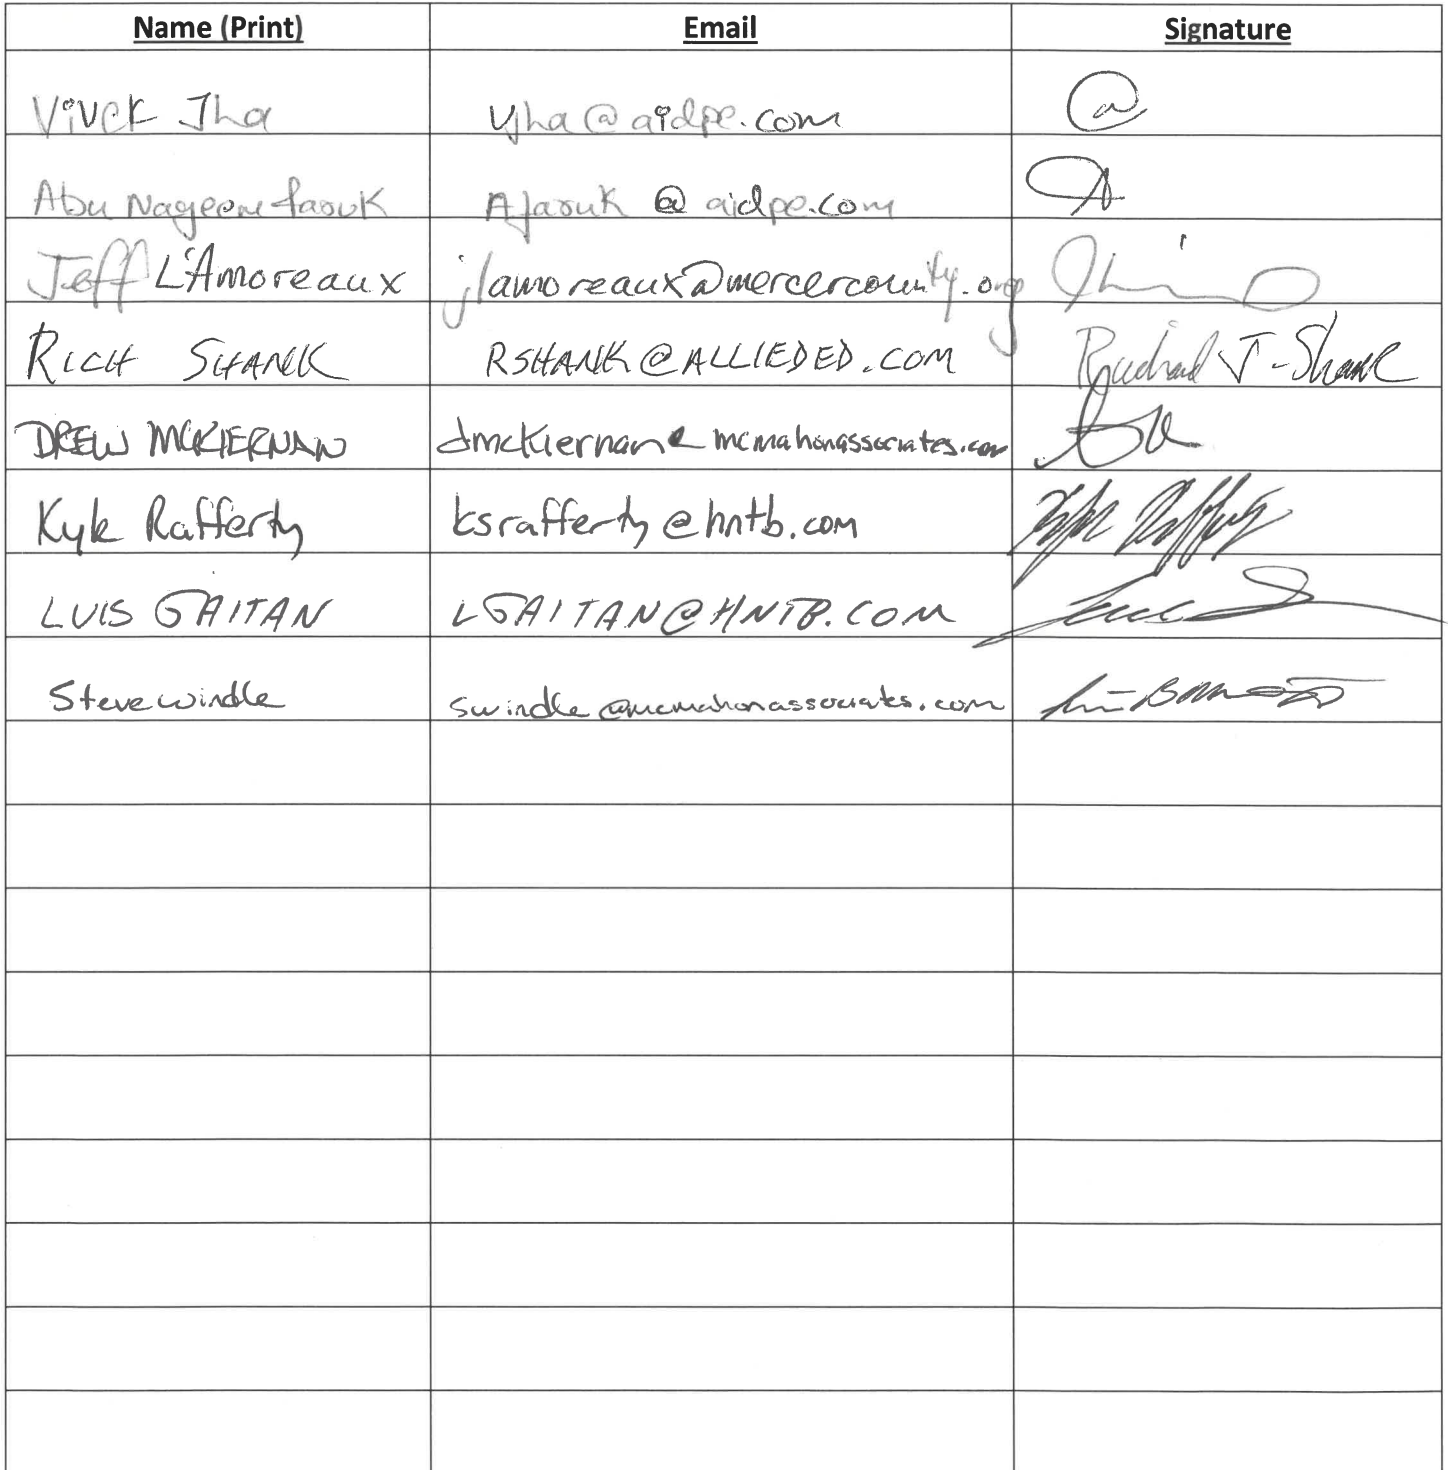 Name (Print) Email Signature
Vivek Jha vjha@aidpe.com
Abu Nageem farouk Afarouk @ aidpe.com
Jeff L'Amoreaux jlamoreaux@mercercounty.org
RICH SHANK RSHANK@ALLIEDED.COM Richard J-Shank
DREW MCKIERNAN dmckiernan@mcmahonassociates.com
Kyle Rafferty ksrafferty@hntb.com Kyle Rafferty
LUIS GAITAN LGAITAN@HNTB.COM
Steve windle swindle@mcmahonassociates.com